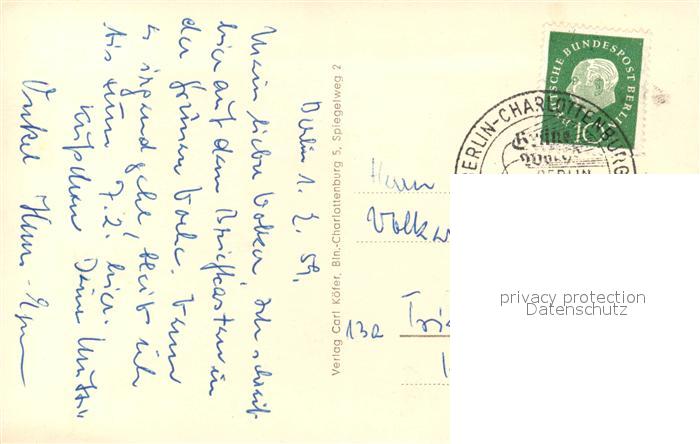 Berlin 1. 2. 59.
Mein lieber Volker, ich schreib
hier auf dem Briefkasten in
der Grünen Woche. Wenn
es irgend geht, bleib ich
bis zum 7.2. hier.
Küßchen Deine Mutti
Onkel Hans-
Verlag Carl Köfer, Bln.-Charlottenburg 5, Spiegelweg 2
DEUTSCHE BUNDESPOST BERLIN
10
BERLIN-CHARLOTTENBURG
Grüne
Woche
BERLIN
Herrn
Volk
13a
privacy protection
Datenschutz